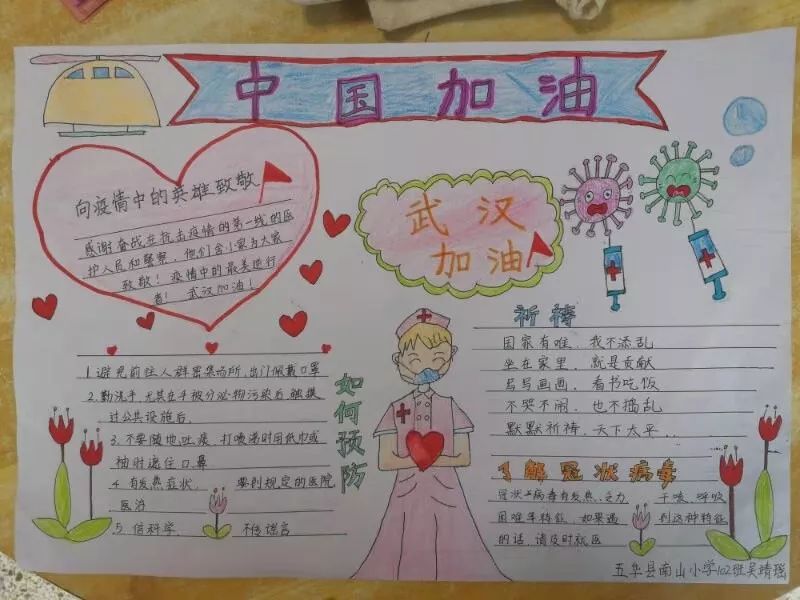 中国加油
向疫情中的英雄致敬
感谢奋战在抗击疫情的第一线的医
护人员和警察，他们舍小家为大家
致敬！疫情中的最美逆行
者！武汉加油！
武汉
加油
祈祷
国家有难，我不添乱
坐在家里，就是贡献
写写画画，看书吃饭
不哭不闹，也不捣乱
默默祈祷，天下太平
如何预防
1.避免前往人群密集场所，出门佩戴口罩
2.勤洗手，尤其在手被分泌物污染后，触摸
过公共设施后
3.不要随地吐痰，打喷嚏时用纸巾或
袖时遮住口鼻
4.有发热症状，要到规定的医院
医治
5.信科学，不传谣言
了解冠状病毒
冠状病毒有发热、乏力、干咳、呼吸
困难等特征，如果遇到这种特征
的话，请及时就医
五华县南山小学102班吴靖瑶